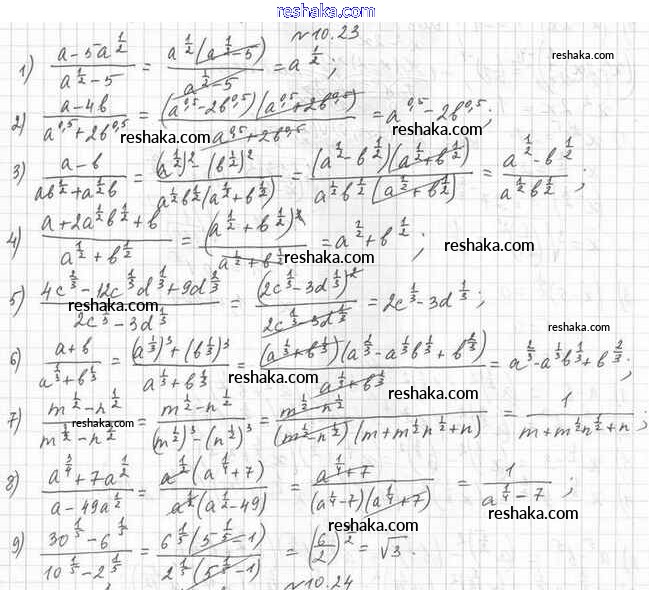 reshaka.com
№10.23
1) (a-5a^(1/2))/(a^(1/2)-5) = (a^(1/2)(a^(1/2)-5))/(a^(1/2)-5) = a^(1/2);
reshaka.com
2) (a-4b)/(a^0,5+2b^0,5) = ((a^0,5-2b^0,5)(a^0,5+2b^0,5))/(a^0,5+2b^0,5) = a^0,5-2b^0,5;
reshaka.com reshaka.com
3) (a-b)/(ab^(1/2)+a^(1/2)b) = ((a^(1/2))^2-(b^(1/2))^2)/(a^(1/2)b^(1/2)(a^(1/2)+b^(1/2))) = ((a^(1/2)-b^(1/2))(a^(1/2)+b^(1/2)))/(a^(1/2)b^(1/2)(a^(1/2)+b^(1/2))) = (a^(1/2)-b^(1/2))/(a^(1/2)b^(1/2));
4) (a+2a^(1/2)b^(1/2)+b)/(a^(1/2)+b^(1/2)) = (a^(1/2)+b^(1/2))^2/(a^(1/2)+b^(1/2)) = a^(1/2)+b^(1/2);
reshaka.com reshaka.com reshaka.com
5) (4c^(2/3)-12c^(1/3)d^(1/3)+9d^(2/3))/(2c^(1/3)-3d^(1/3)) = (2c^(1/3)-3d^(1/3))^2/(2c^(1/3)-3d^(1/3)) = 2c^(1/3)-3d^(1/3);
reshaka.com reshaka.com
reshaka.com
6) (a+b)/(a^(1/3)+b^(1/3)) = ((a^(1/3))^3+(b^(1/3))^3)/(a^(1/3)+b^(1/3)) = ((a^(1/3)+b^(1/3))(a^(2/3)-a^(1/3)b^(1/3)+b^(2/3)))/(a^(1/3)+b^(1/3)) = a^(2/3)-a^(1/3)b^(1/3)+b^(2/3);
reshaka.com
7) (m^(1/2)-n^(1/2))/(m^(3/2)-n^(3/2)) = (m^(1/2)-n^(1/2))/((m^(1/2))^3-(n^(1/2))^3) = (m^(1/2)-n^(1/2))/((m^(1/2)-n^(1/2))(m+m^(1/2)n^(1/2)+n)) = 1/(m+m^(1/2)n^(1/2)+n);
reshaka.com reshaka.com
8) (a^(3/4)+7a^(1/2))/(a-49a^(1/2)) = (a^(1/2)(a^(1/4)+7))/(a^(1/2)(a^(1/2)-49)) = (a^(1/4)+7)/((a^(1/4)-7)(a^(1/4)+7)) = 1/(a^(1/4)-7);
reshaka.com reshaka.com
reshaka.com
9) (30^(1/5)-6^(1/5))/(10^(1/5)-2^(1/5)) = (6^(1/5)(5^(1/5)-1))/(2^(1/5)(5^(1/5)-1)) = (6/2)^(1/2) = √3.
reshaka.com reshaka.com
№10.24